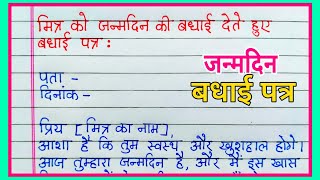 मित्र को जन्मदिन की बधाई देते हुए
बधाई पत्र :
जन्मदिन
बधाई पत्र
पता -
दिनांक -
प्रिय [मित्र का नाम],
आशा है कि तुम स्वस्थ और खुशहाल होगे।
आज तुम्हारा जन्मदिन है, और मैं इस खास